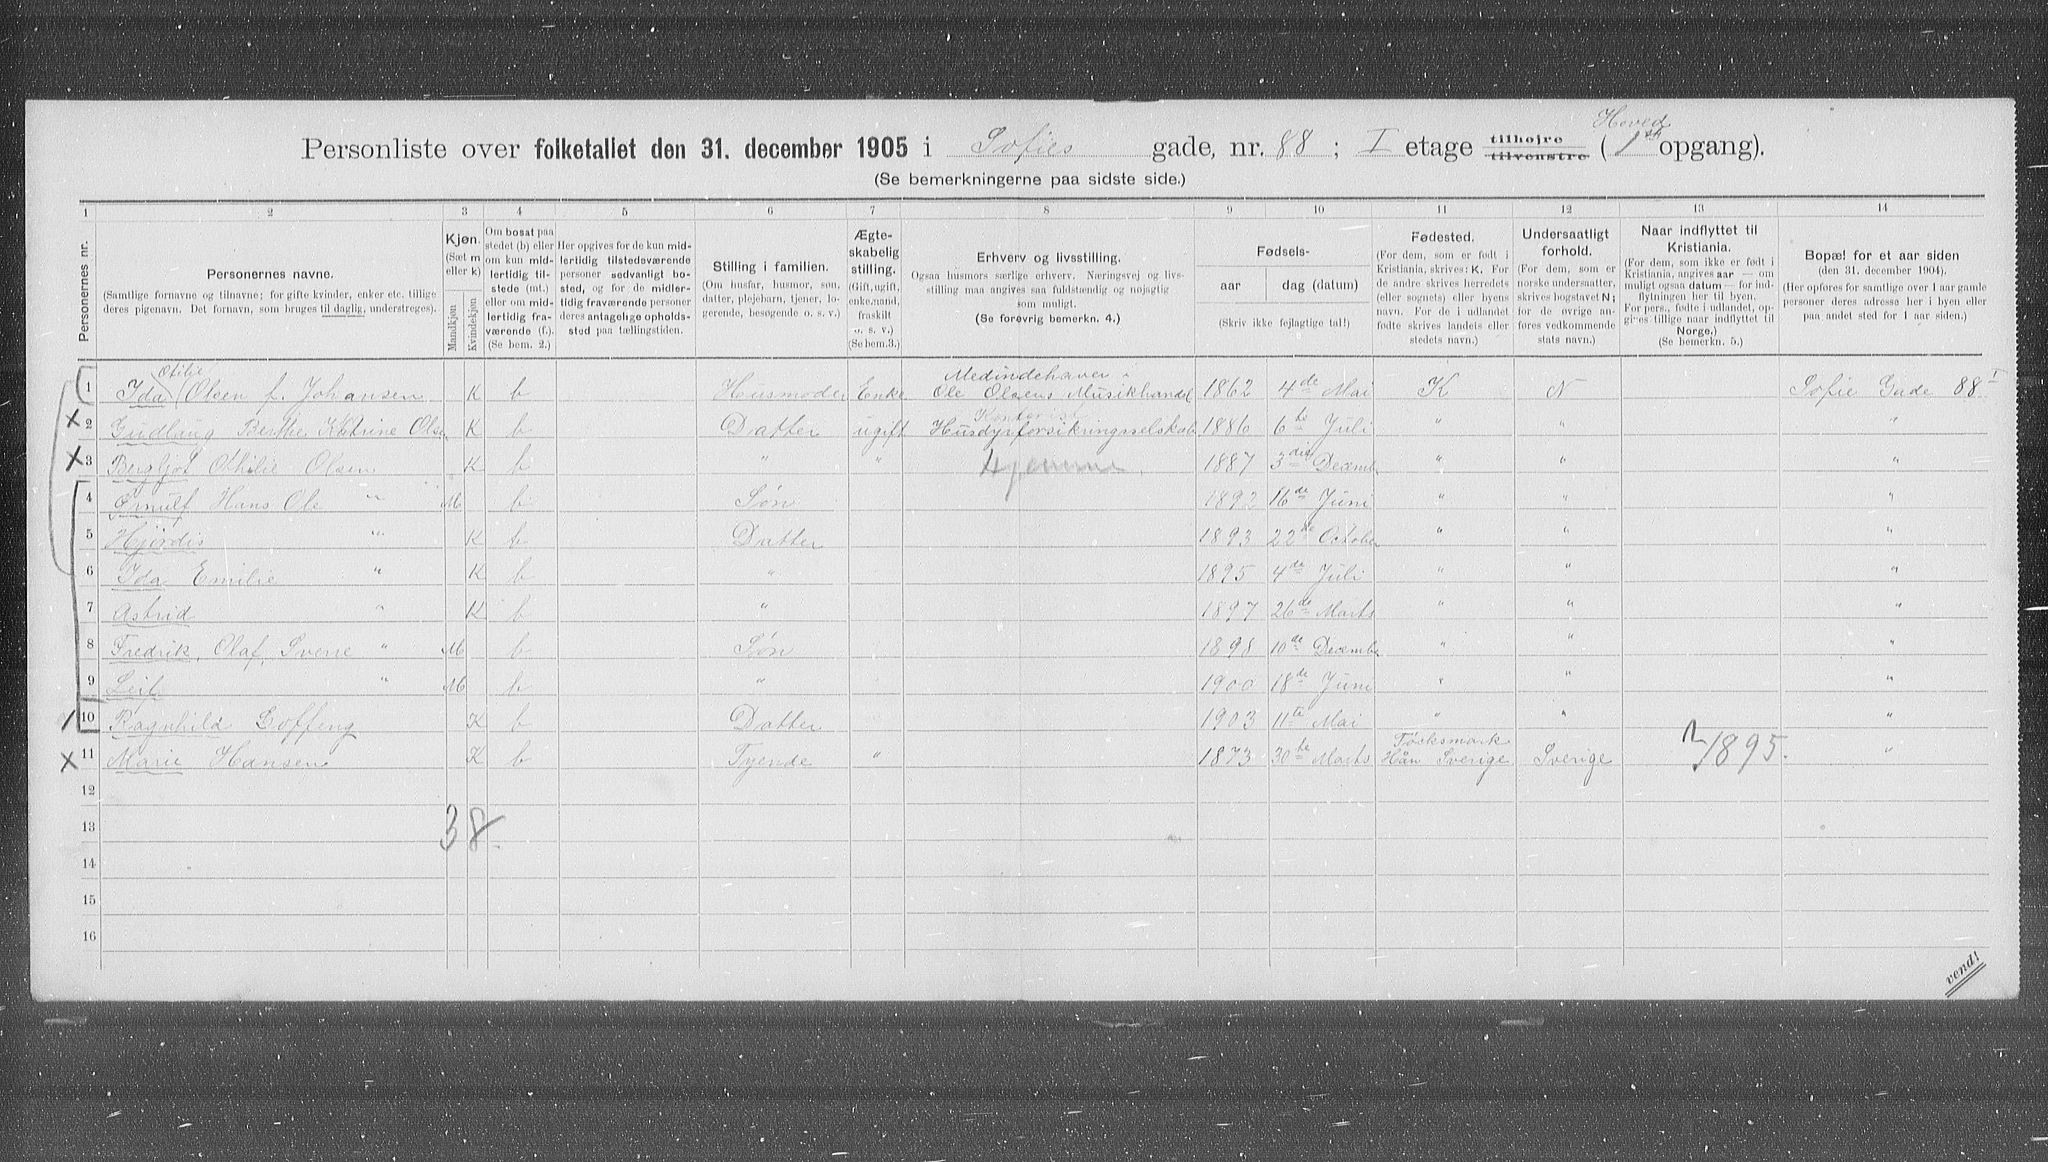 Personliste over folketallet den 31. december 1905 i Sofies gade, nr. 88 ; I etage tilhøjre tilvenstre ( Hoved 1ste opgang).
(Se bemerkningerne paa sidste side.)
1 2 3 4 5 6 7 8 9 10 11 12 13 14
Personernes nr.
Personernes navne.
(Samtlige fornavne og tilnavne; for gifte kvinder, enker etc. tillige
deres pigenavn. Det fornavn, som bruges til daglig, understreges).
Kjøn.
(Sæt m
eller k)
Mandkjøn
Kvindekjøn
Om bosat paa
stedet (b) eller
om kun mid-
lertidig til-
stede (mt.)
eller om mid-
lertidig fra-
værende (f.).
(Se bem. 2.)
Her opgives for de kun mid-
lertidig tilstedeværende
personer sedvanligt bo-
sted, og for de midler-
tidig fraværende personer
deres antagelige opholds-
sted paa tællingstiden.
Stilling i familien.
(Om husfar, husmor, søn,
datter, plejebarn, tjener, lo-
gerende, besøgende o. s. v.)
Ægte-
skabelig
stilling.
(Gift, ugift,
enke.mand,
fraskilt
o. s. v.)
(Se bem.3.)
Erhverv og livsstilling.
Ogsaa husmors særlige erhverv. Næringsvej og livs-
stilling maa angives saa fuldstændig og nøjagtig
som muligt.
(Se forøvrig bemerkn. 4.)
Fødsels-
aar dag (datum)
(Skriv ikke fejlagtige tal!)
Fødested.
(For dem, som er født i
Kristiania, skrives: K. For
de andre skrives herredets
(eller sognets) eller byens
navn. For de i udlandet
fødte skrives landets eller
stedets navn.)
Undersaatligt
forhold.
(For dem, som er
norske undersaatter,
skrives bogstavet N;
for de øvrige an-
føres vedkommende
stats navn.)
Naar indflyttet til
Kristiania.
(For dem, som ikke er født i
Kristiania, angives aar — om
muligt ogsaa datum — for ind-
flytningen her til byen.
For pers., fødte i udlandet, op-
gives tillige naar indflyttet til
Norge.)
(Se bemerkn. 5.)
Bopæl for et aar siden
(den 31. december 1904).
(Her opføres for samtlige over 1 aar gamle
personer deres adresse her i byen eller
paa andet sted for 1 aar siden.)
1 Ida Otilie Olsen f. Johansen K b Husmoder Enke Medindehaver i Ole Olsens Musikhandel 1862 4de Mai K N Sofie Gade 88 I
X 2 Gudlaug Berthe Katrine Olsen K b Datter ugift Kontorist Husdyrforsikringsselskab 1886 6te Juli " " "
X 3 Bergljot Othilie Olsen K b " " Hjemme. 1887 3die Decemb " " "
4 Ørnulf Hans Ole " M b Søn 1892 16de Juni " " "
5 Hjørdis " K b Datter 1893 22de October " " "
6 Ida Emilie " K b " 1895 4de Juli " " "
7 Astrid " K b " 1897 26de Marts " " "
8 Fredrik, Olaf, Sverre " M b Søn 1898 10de Decembe " " "
9 Leif " M b " 1900 18de Juni " " "
10 Ragnhild Goffeng K b Datter 1903 11te Mai " " "
X 11 Marie Hansen K b Tyende " 1873 30te Marts Töcksmark Hån Sverige Sverige 1895. "
12
13 38.
14
15
16
vend!